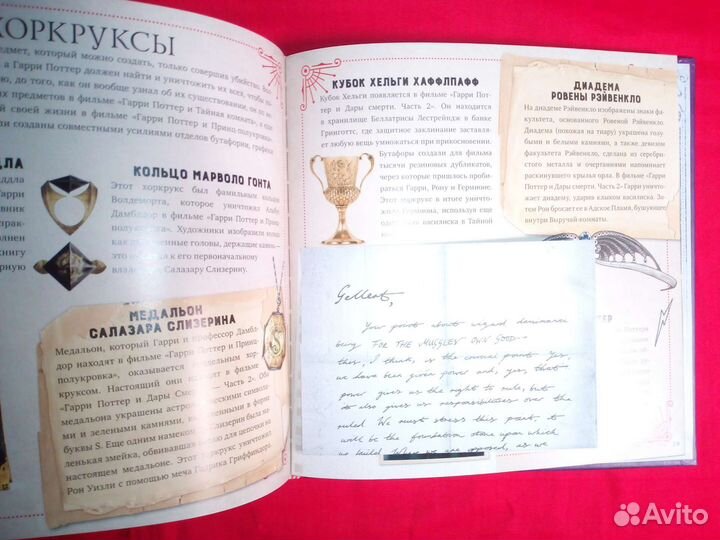 ХОРКРУКСЫ
предмет, который можно создать, только совершив убийство. Вол-
Гарри Поттер должен найти и уничтожить их всех, чтобы по-
до того, как он вообще узнал об их существовании, он
предметов в фильме «Гарри Поттер и Тайная комната», и
своей жизни в фильме «Гарри Поттер и Принц-полукровка».
созданы совместными усилиями отделов бутафории, графики
КОЛЬЦО МАРВОЛО ГОНТА
Этот хоркрукс был фамильным кольцом
Волдеморта, которое уничтожил Альбус
Дамблдор в фильме «Гарри Поттер и Принц-
полукровка». Художники изобразили кольцо
как две головы, держащие камень
к его первоначальному
Салазару Слизерину.
МЕДАЛЬОН
САЛАЗАРА СЛИЗЕРИНА
Медальон, который Гарри и профессор Дамбл-
дор находят в фильме «Гарри Поттер и Принц-
полукровка», оказывается поддельным хор-
круксом. Настоящий они находят в фильме
«Гарри Поттер и Дары Смерти — Часть 2». Оба
медальона украшены астрологическими символа-
ми и зелеными камнями, выложенными в форме
буквы S. Еще одним намеком на Слизерин была ма-
ленькая змейка, обвивавшая ушко для цепочки на
настоящем медальоне. Этот хоркрукс уничтожил
Рон Уизли с помощью меча Годрика Гриффиндора.
КУБОК ХЕЛЬГИ ХАФФЛПАФФ
Кубок Хельги появляется в фильме «Гарри Пот-
тер и Дары смерти. Часть 2». Он находится
в хранилище Беллатрисы Лестрейндж в банке
Гринготтс, где защитное заклинание заставляет
любую вещь умножаться при прикосновении.
Бутафоры создали для фильма
тысячи резиновых дубликатов,
через которые пришлось пробираться
Гарри, Рону и Гермионе.
Этот хоркрукс в итоге уничтожит
Гермиона, используя еще
один клык василиска в Тайной
ДИАДЕМА
РОВЕНЫ РЭЙВЕНКЛО
На диадеме Рэйвенкло изображены знаки фа-
культета, основанного Ровеной Рэйвенкло.
Диадема (похожая на тиару) украшена голубы-
ми и белыми камнями, а также девизом
факультета Рэйвенкло, сделана из серебри-
стого металла и очертаниями напоминает
раскинувшего крылья орла. В фильме «Гарри
Поттер и Дары Смерти. Часть 2» Гарри уничто-
жает диадему, ударив клыком василиска. За-
тем Рон бросает ее в Адское Пламя, бушующее
внутри Выручай-комнаты.
Gellert,
Your point about wizard dominance
being FOR THE MUGGLES' OWN GOOD—
this, I think, is the crucial point. Yes,
we have been given power and, yes, that
power gives us the right to rule, but
it also gives us responsibilities over the
ruled. We must stress this point, it
will be the foundation stone upon which
we build. Where we are opposed, as we
Avito